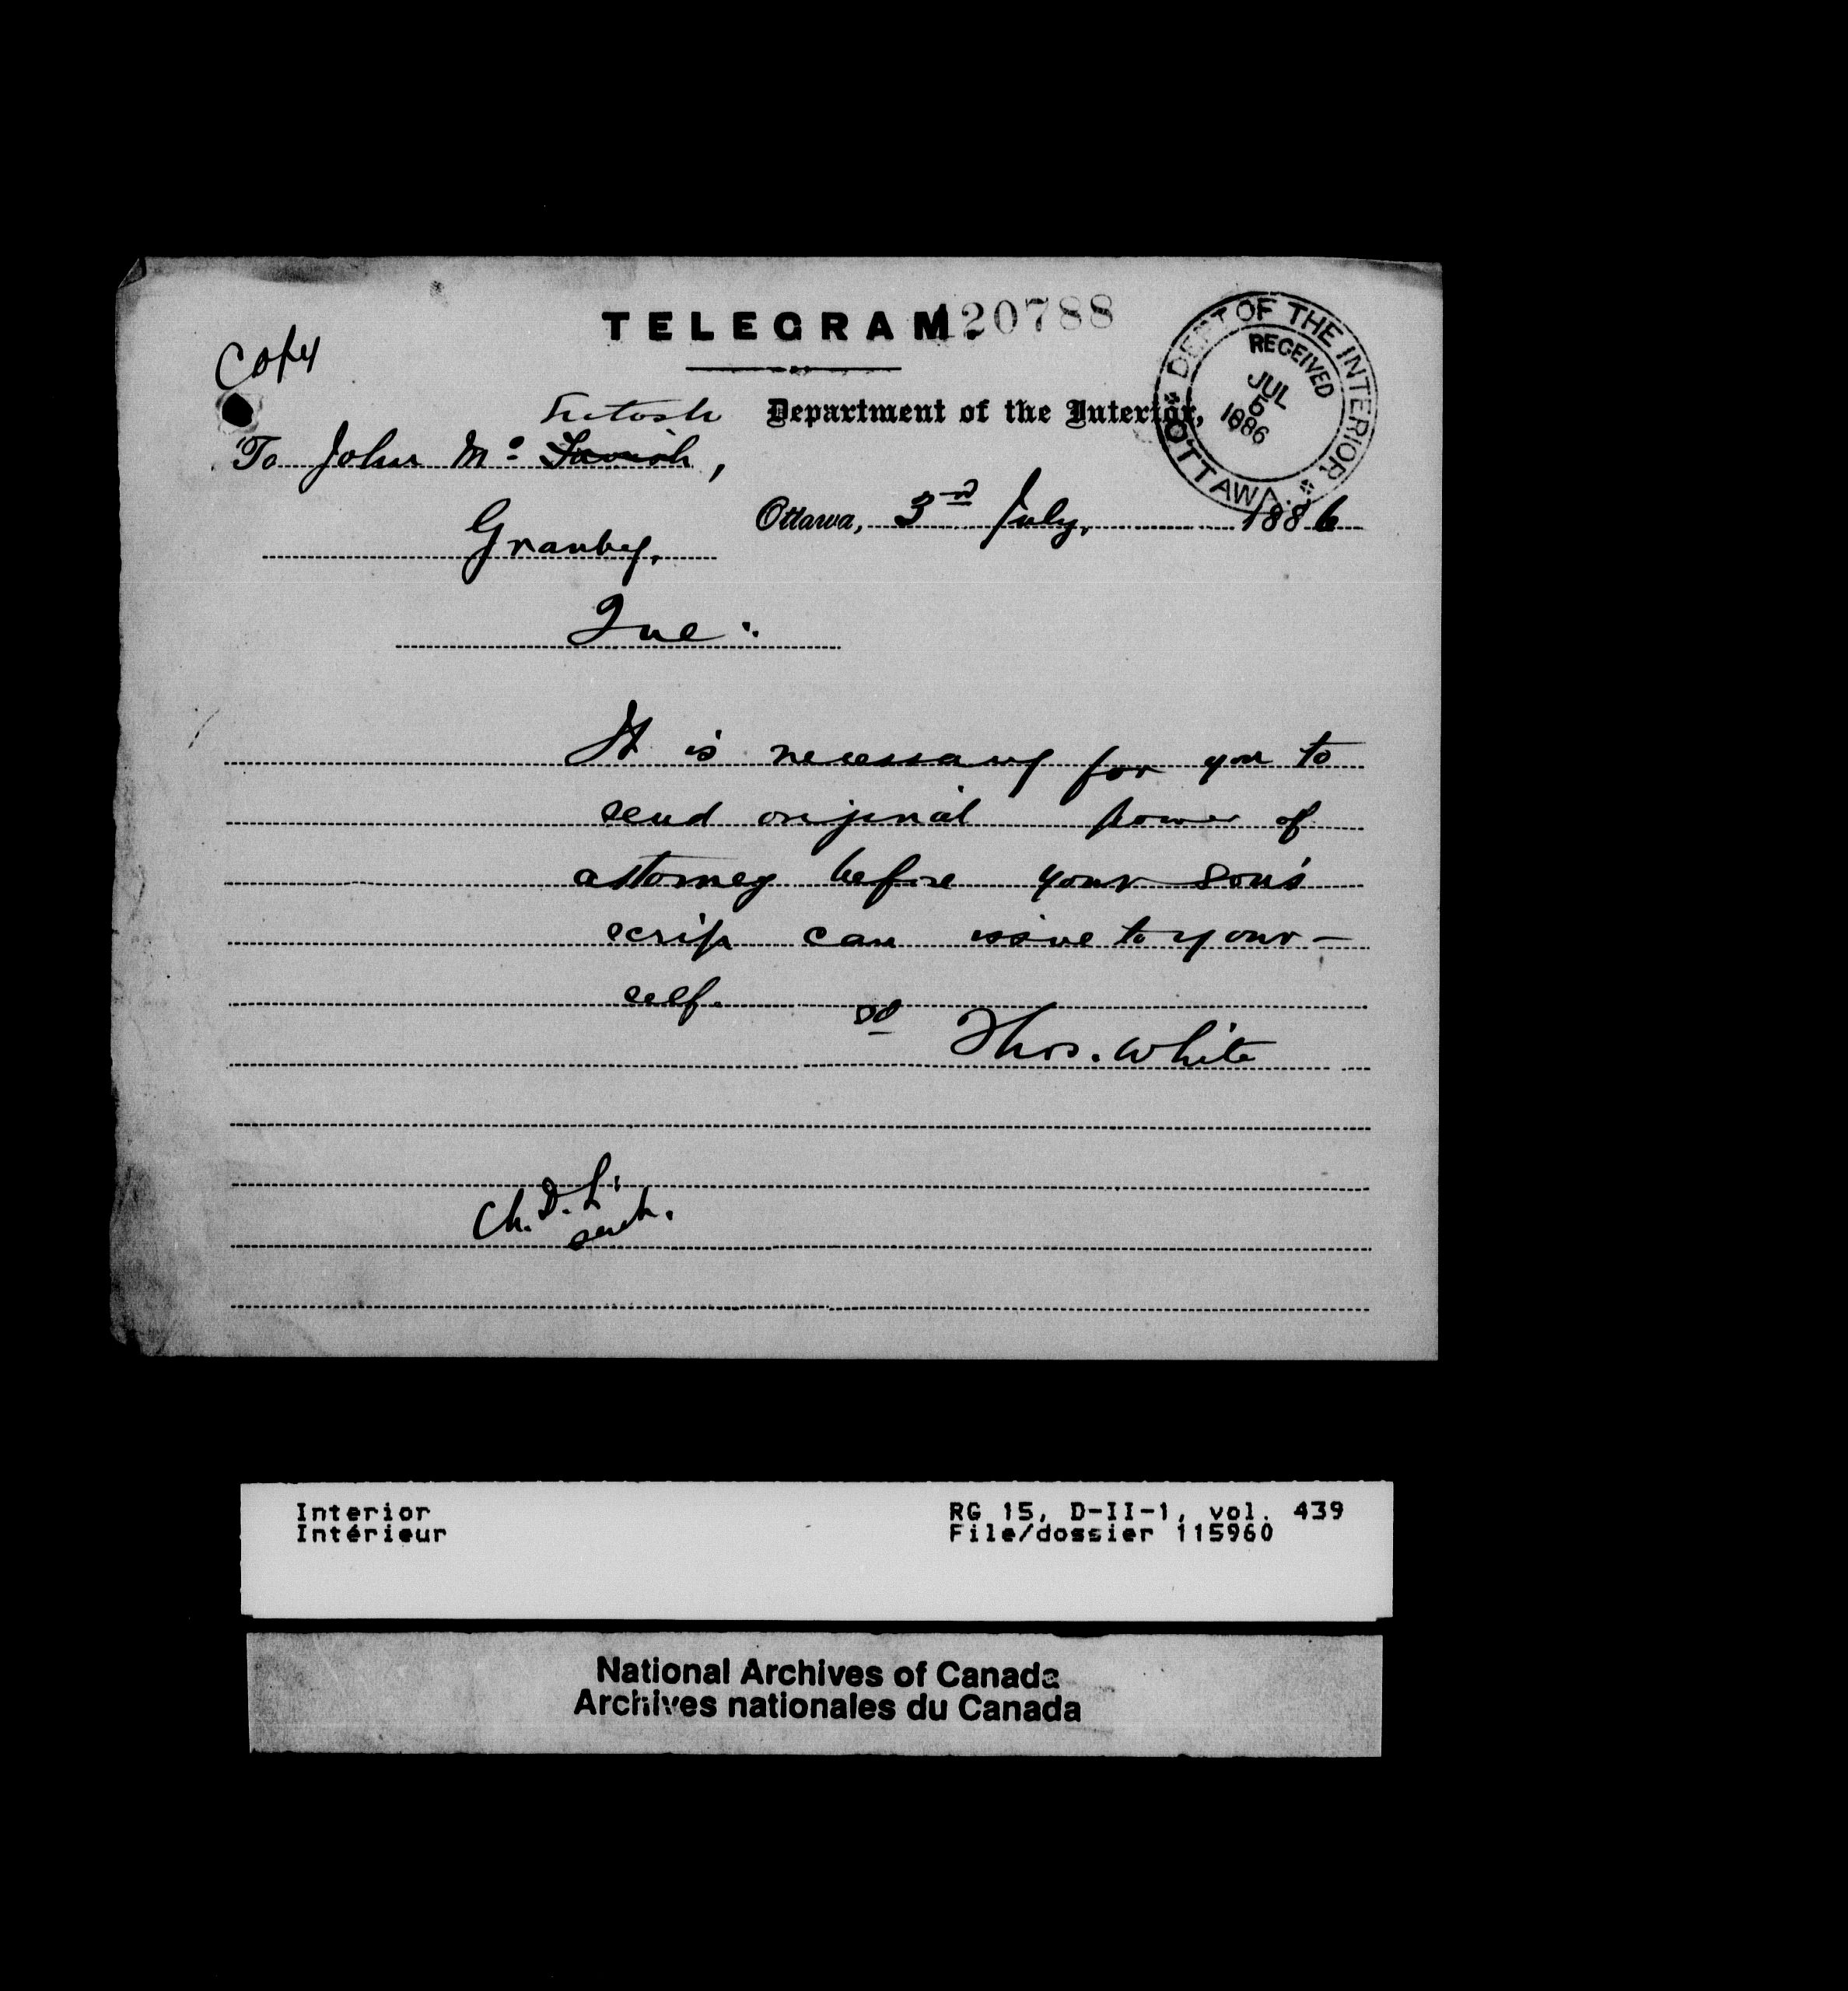 TELEGRAM.
120788
Copy
DEPT OF THE INTERIOR
RECEIVED
JUL
5
1886
OTTAWA.
Intosh
Department of the Interior,
To John Mc Tavish,
Ottawa, 3rd July, 1886
Granby,
Que:
It is necessary for you to
send original power of
attorney before your son's
scrip can issue to your-
self.
sd Thos. White
Ch. D. L.
Interior
Intérieur
RG 15, D-II-1, vol. 439
File/dossier 115960
National Archives of Canada
Archives nationales du Canada